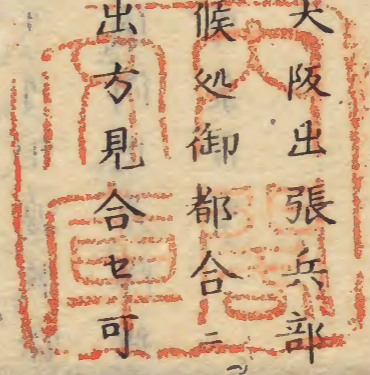 大阪出張兵部
候処御都合ニ
出方見合セ可